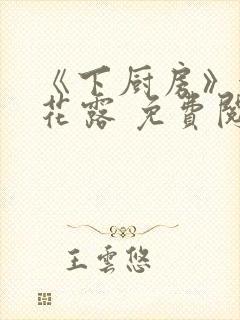 《下厨房》
花露 免費閱
王雲悠